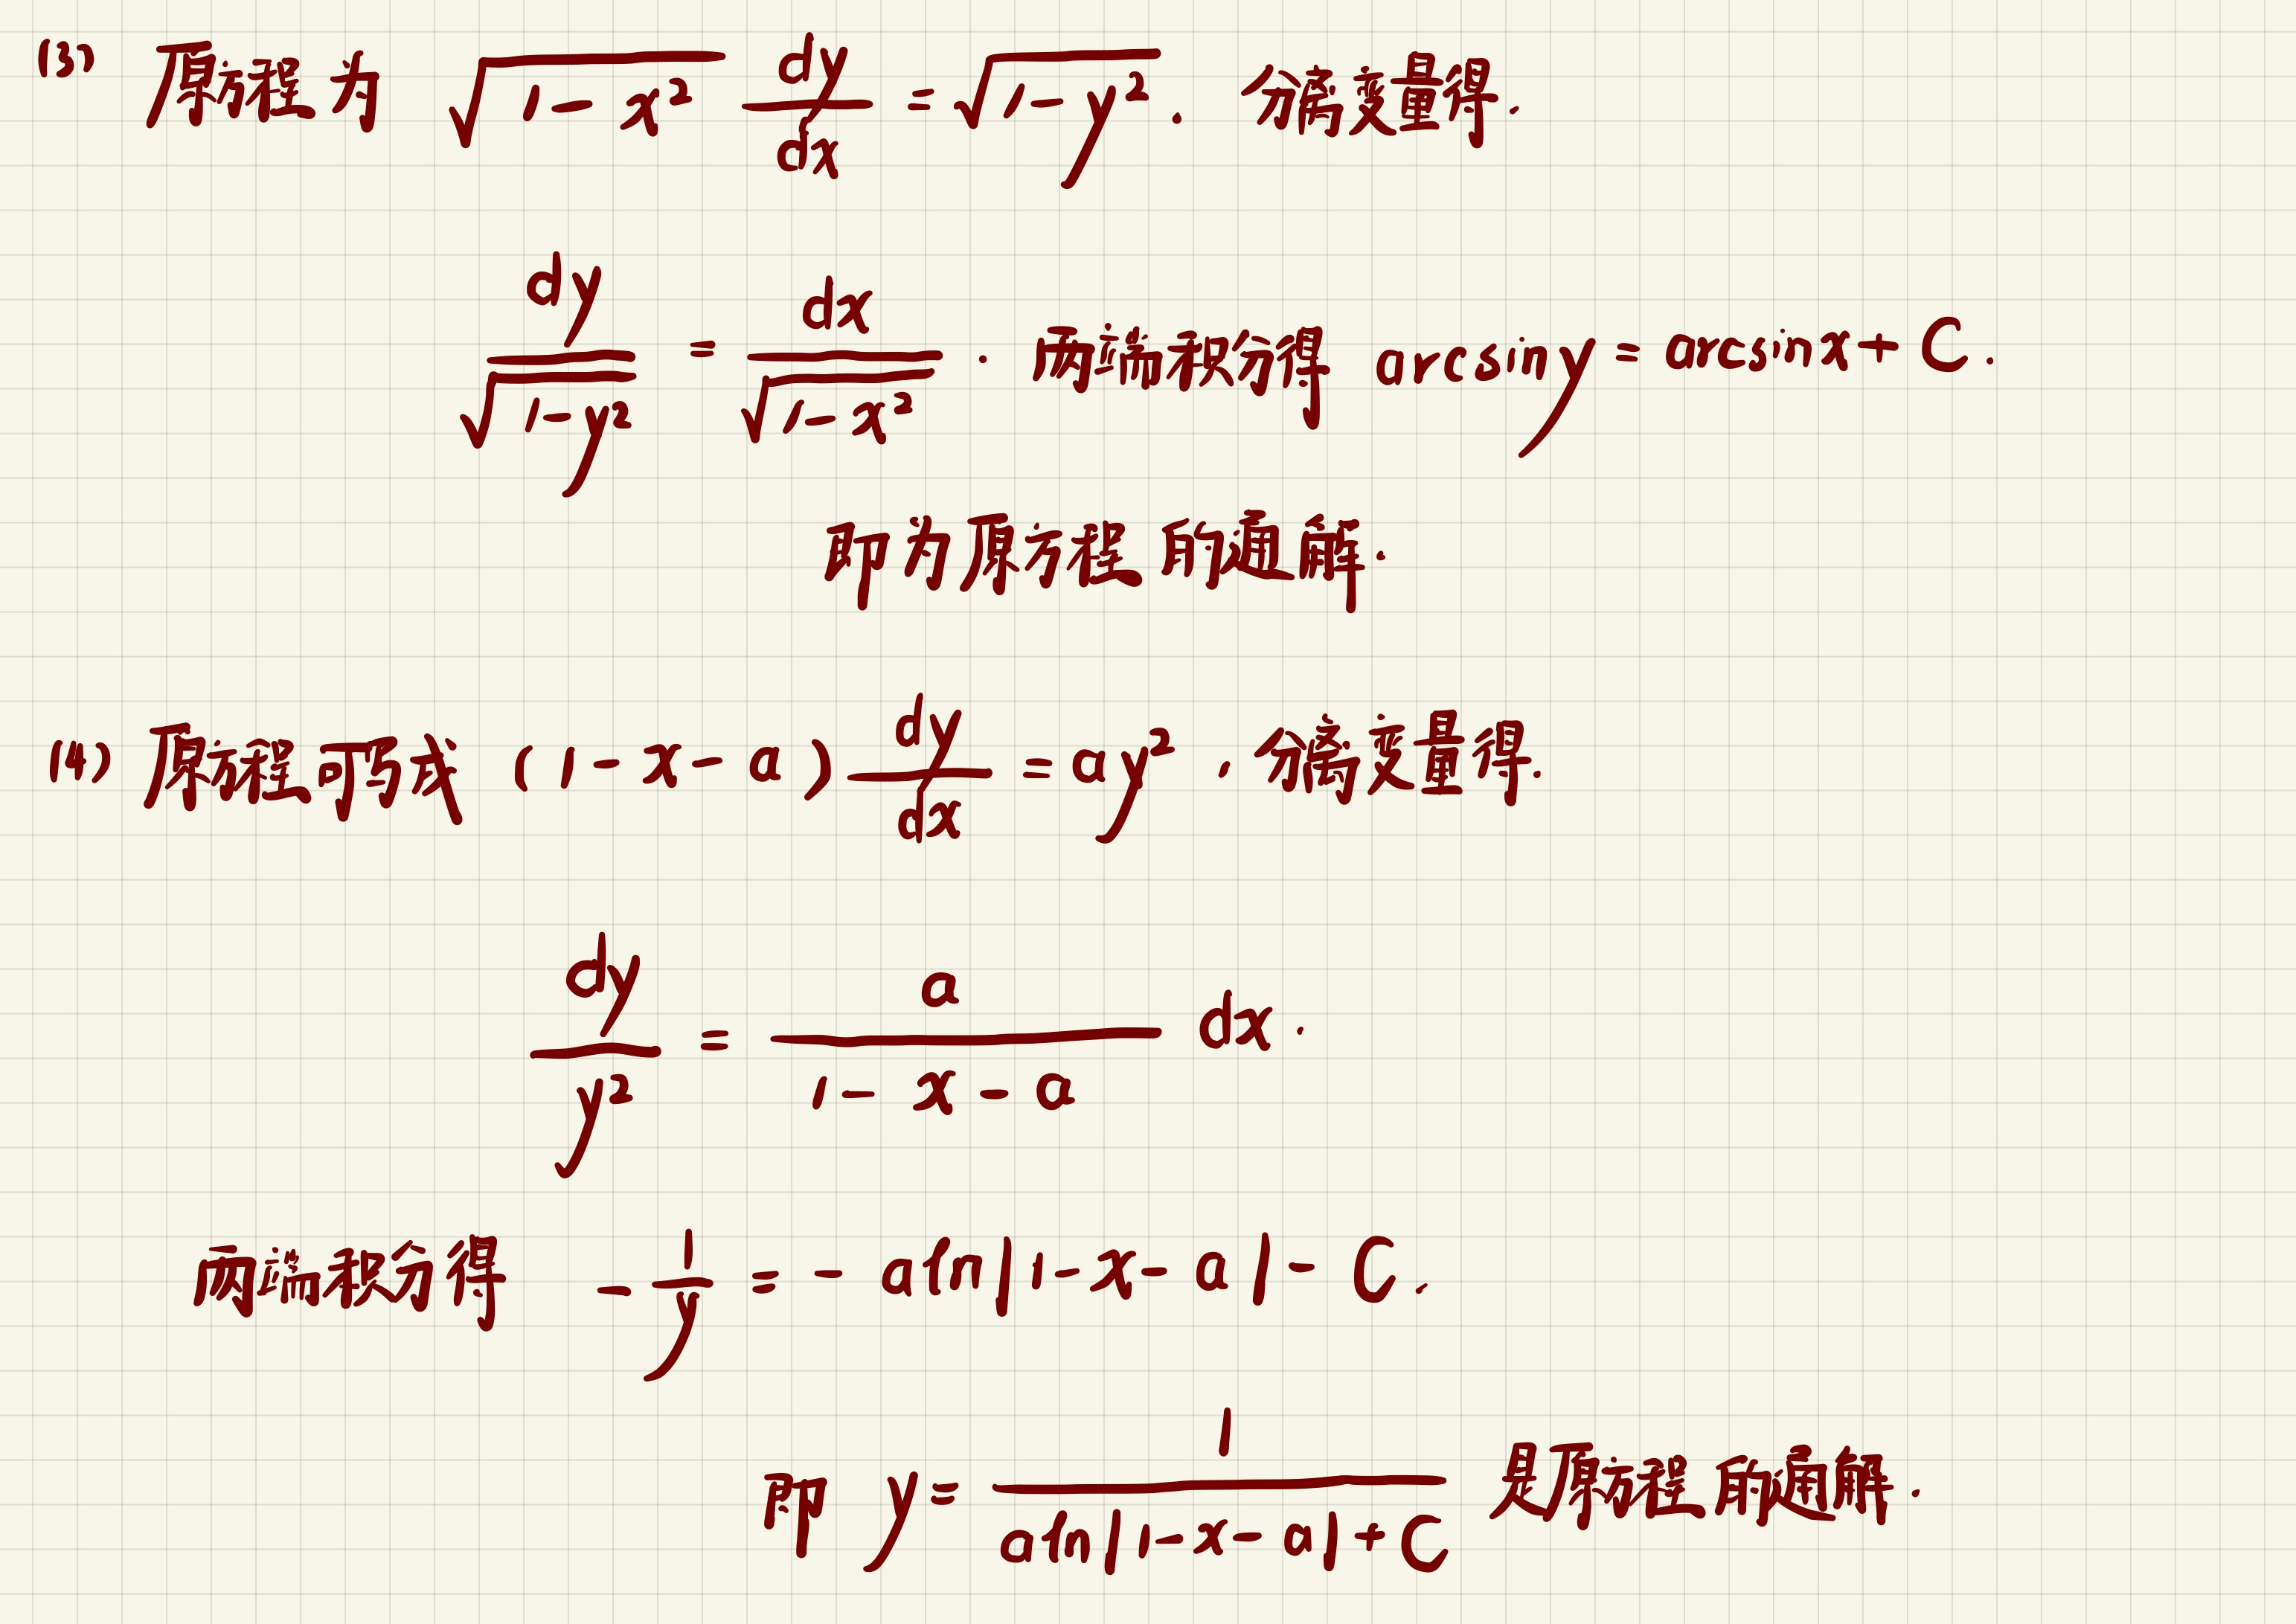 (3) 原方程为 √(1-x²) dy/dx = √(1-y²). 分离变量得.
dy/√(1-y²) = dx/√(1-x²). 两端积分得 arcsin y = arcsin x + C.
即为原方程的通解.
(4) 原方程可写成 (1-x-a) dy/dx = ay², 分离变量得.
dy/y² = a/(1-x-a) dx.
两端积分得 -1/y = -a ln|1-x-a| - C.
即 y = 1/(a ln|1-x-a| + C) 是原方程的通解.